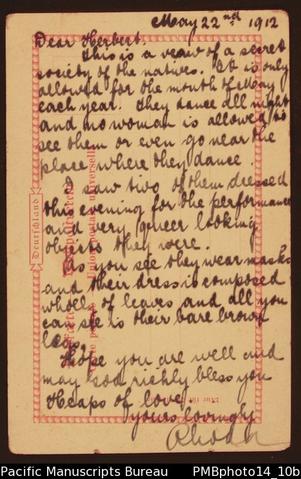 May 22nd 1912
Dear Herbert,
This is a veiw of a secret
society of the natives. It is only
allowed for the month of May
each year. They dance all night
and no woman is allowed to
see them or even go near the
place where they dance.
I saw two of them dressed
this evening for the performance
and very queer looking
objects they were.
As you see they wear masks
and their dress is composed
wholly of leaves and all you
can see is their bare brown
legs.
Hope you are well and
may God richly bless you
Heaps of love
yours lovingly
Rhoda
Deutschland
Pacific Manuscripts Bureau PMBphoto14_10b